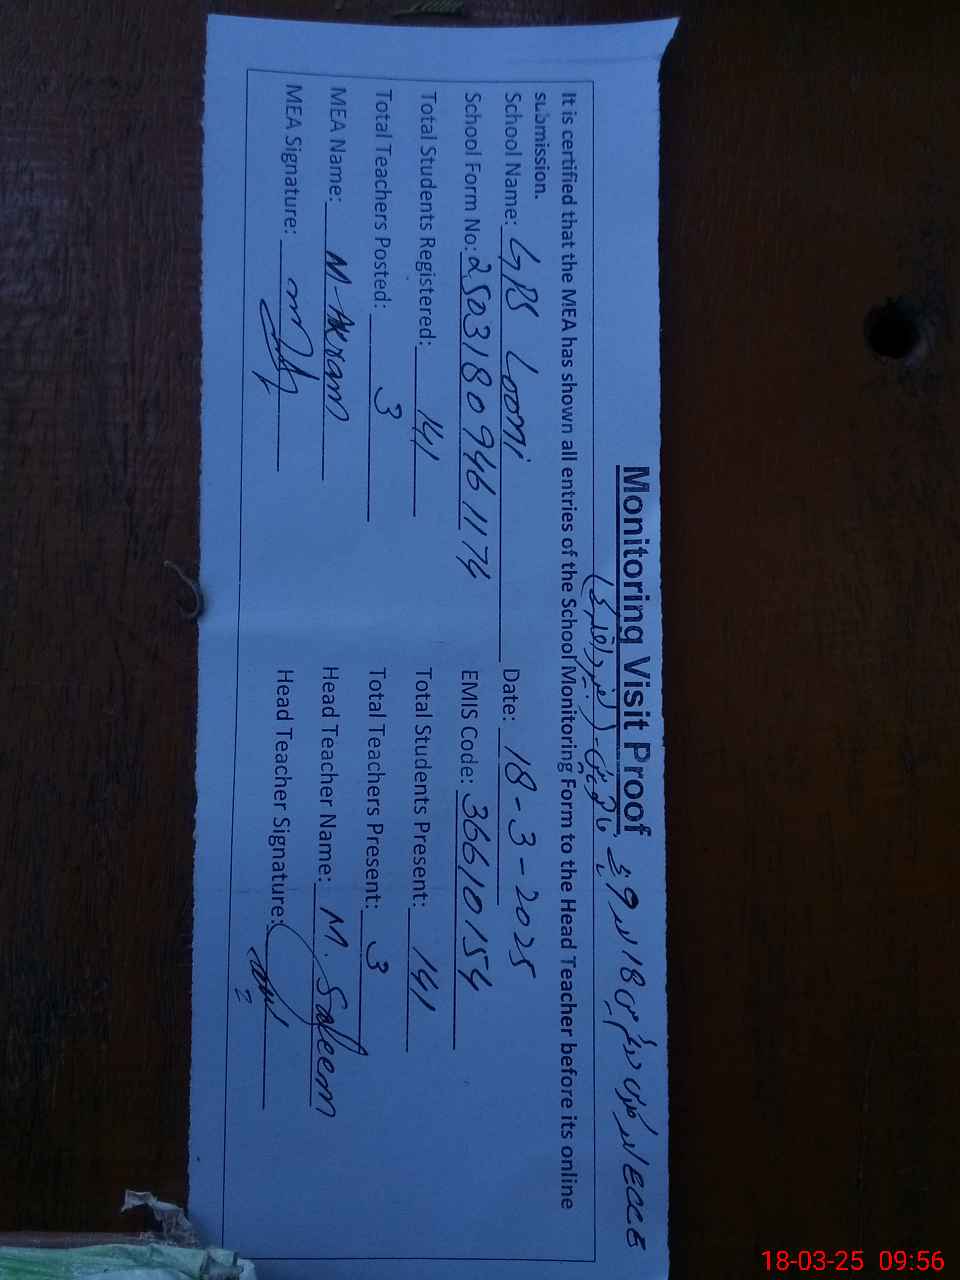 Monitoring Visit Proof
ECCE 18 9
It is certified that the MEA has shown all entries of the School Monitoring Form to the Head Teacher before its online
submission.
School Name: GPS Loomi Date: 18-3-2025
School Form No: 25031809461174 EMIS Code: 36610154
Total Students Registered: 141 Total Students Present: 141
Total Teachers Posted: 3 Total Teachers Present: 3
MEA Name: M-Akram Head Teacher Name: M. Saleem
MEA Signature: Head Teacher Signature:
18-03-25 09:56